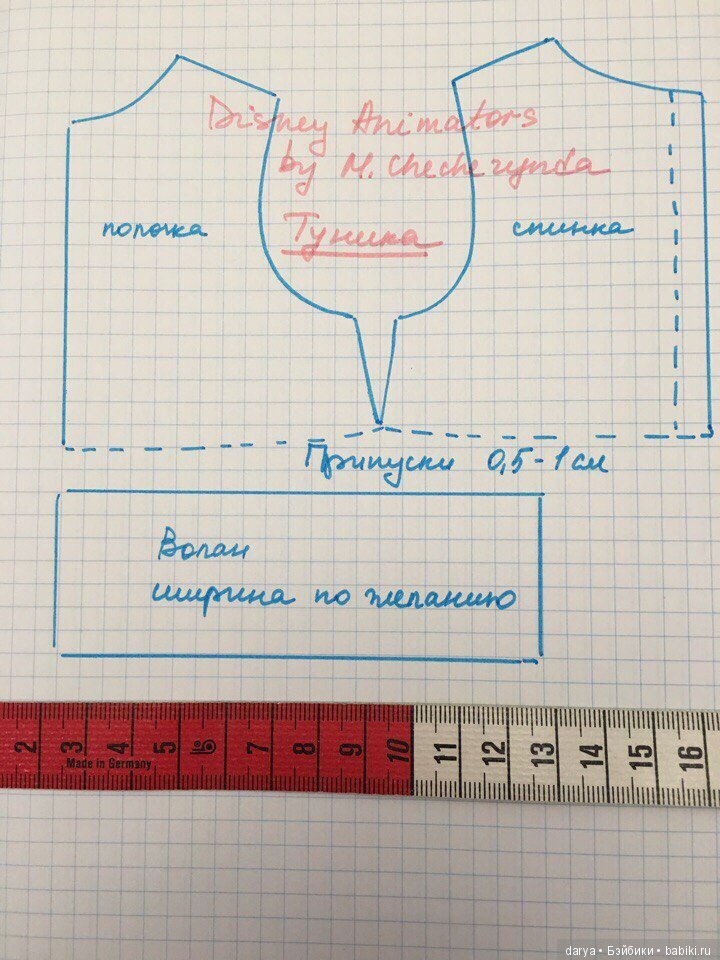 Disney Animators
by M. Checherynda
Туника
полочка
спинка
Припуски 0,5-1 см
Волан
ширина по желанию
2 3 4 5 7 8 9 10 11 12 13 14 15 16
Made in Germany
darya • Бэйбики • babiki.ru